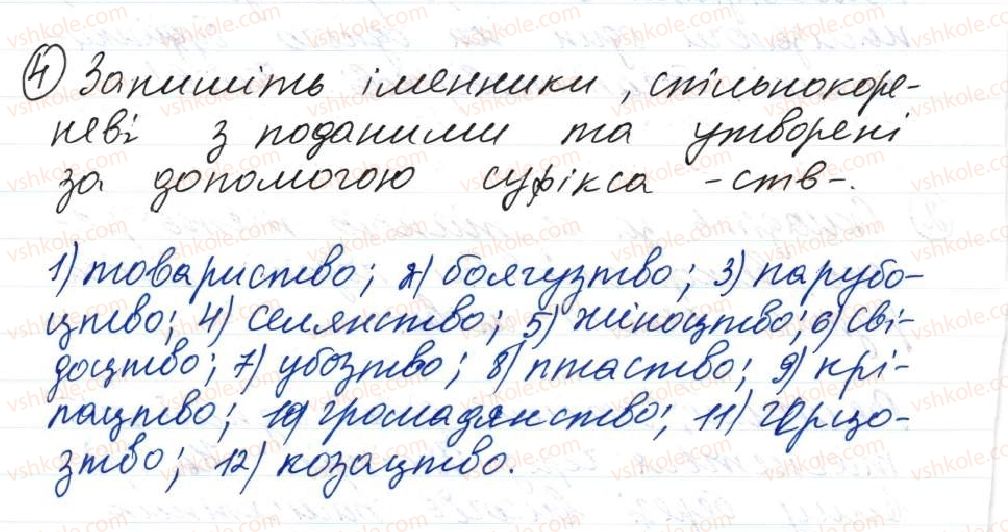 4 Запишіть іменники, спільнокоре-
неві з поданими та утворені
за допомогою суфікса -ств-.
1) товариство; 2) боягузтво; 3) парубо-
цтво; 4) селянство; 5) жіноцтво; 6) сві-
доцтво; 7) убозтво; 8) птаство; 9) крі-
пацтво; 10) громадянство; 11) герцо-
зтво; 12) козацтво.